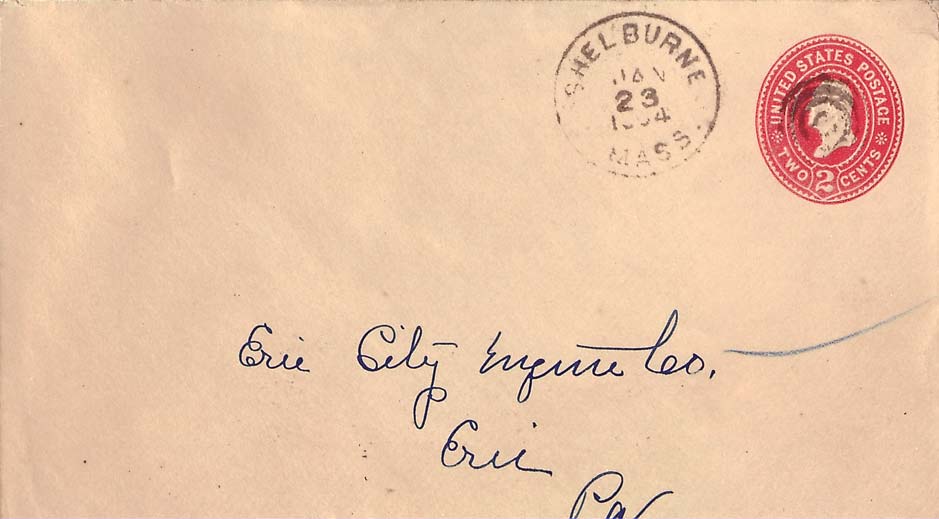 SHELBURNE
JAN
23
1904
MASS.
UNITED STATES POSTAGE
TWO 2 CENTS
Erie City Engine Co.
Erie
Pa